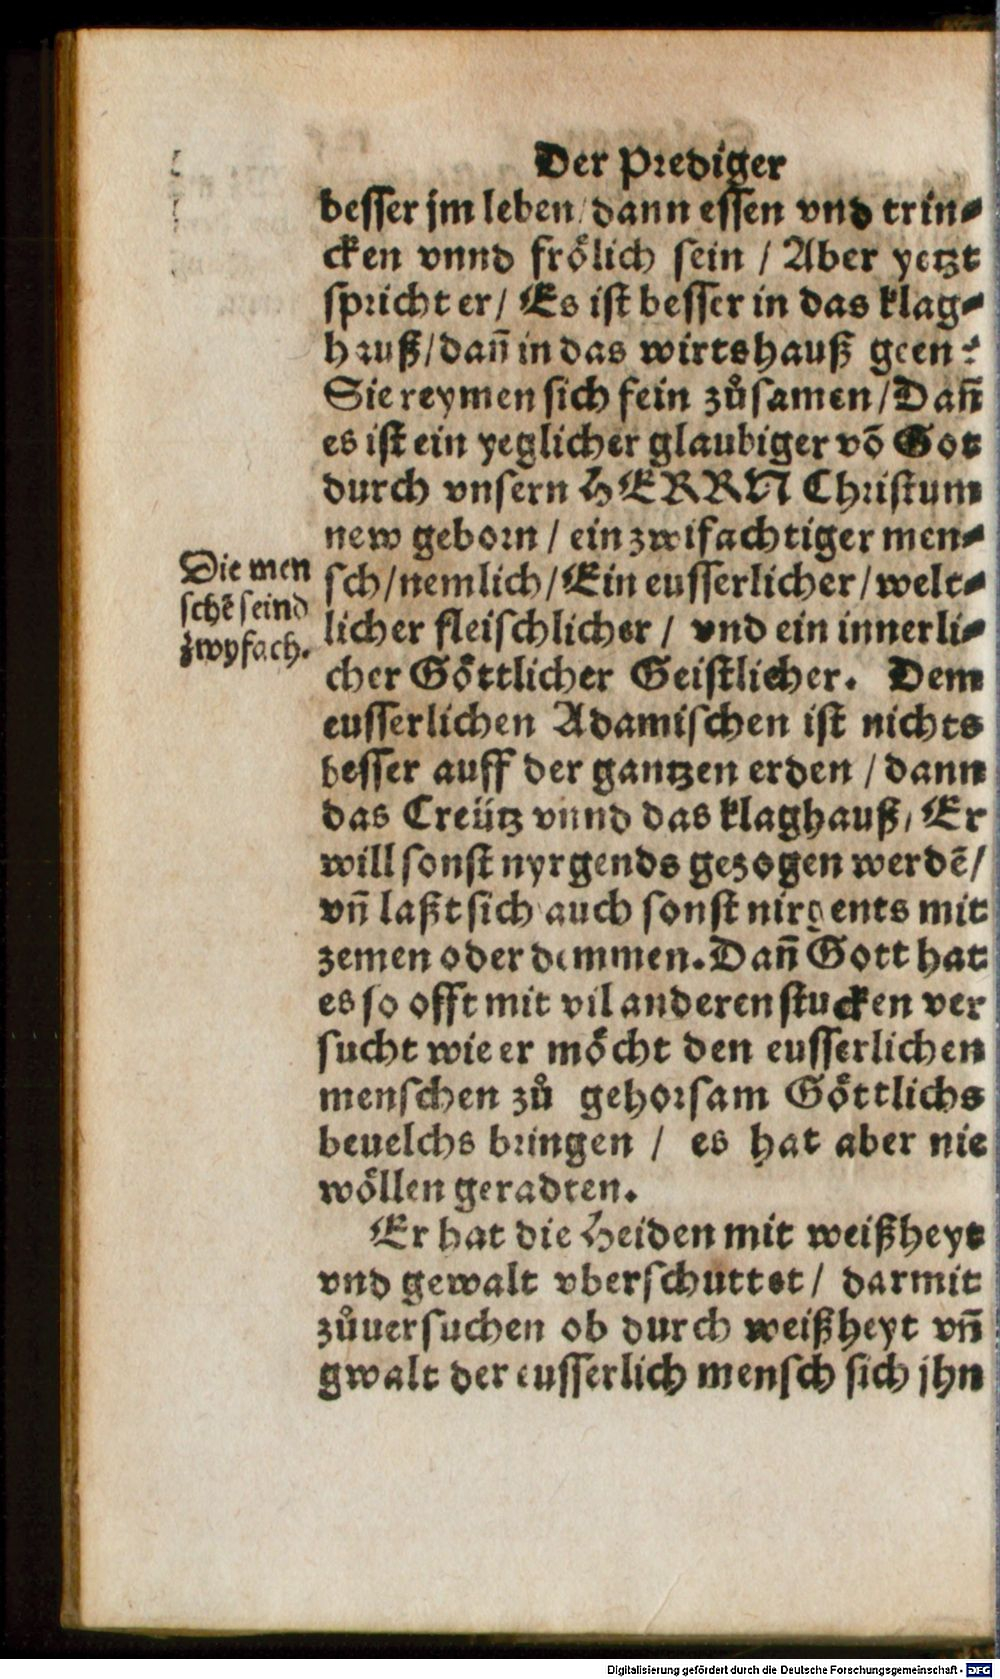 Der Prediger
besser jm leben / dann essen vnd trin-
cken vnnd frölich sein / Aber yetzt
spricht er / Es ist besser in das klag-
hauß / dañ in das wirtshauß geen?
Sie reymen sich fein zůsamen / Dañ
es ist ein yeglicher glaubiger võ Got
durch vnsern HERRN Christum
new geborn / ein zwifachtiger men-
sch / nemlich / Ein eusserlicher / welt-
licher fleischlicher / vnd ein innerli-
cher Göttlicher Geistlicher. Dem
eusserlichen Adamischen ist nichts
besser auff der gantzen erden / dann
das Creütz vnnd das klaghauß / Er
will sonst nyrgends gezogen werdẽ /
vñ laßt sich auch sonst nirgents mit
zemen oder demmen. Dañ Gott hat
es so offt mit vil anderen stucken ver
sucht wie er möcht den eusserlichen
menschen zů gehorsam Göttlichs
beuelchs bringen / es hat aber nie
wöllen geradten.
Er hat die Heiden mit weißheyt
vnd gewalt vberschuttet / darmit
zůuersuchen ob durch weißheyt vñ
gwalt der eusserlich mensch sich jhn
Die men
schẽ seind
zwyfach.
Digitalisierung gefördert durch die Deutsche Forschungsgemeinschaft - DFG